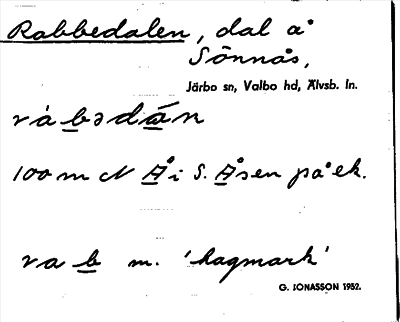 Rabbedalen, dal å
Sönnås,
Järbo sn, Valbo hd, Älvsb. ln.
ràb̲ədá̲n
100 m N Å i S. Åsen på ek.
rab̲ m. 'hagmark'
G. JONASSON 1952.